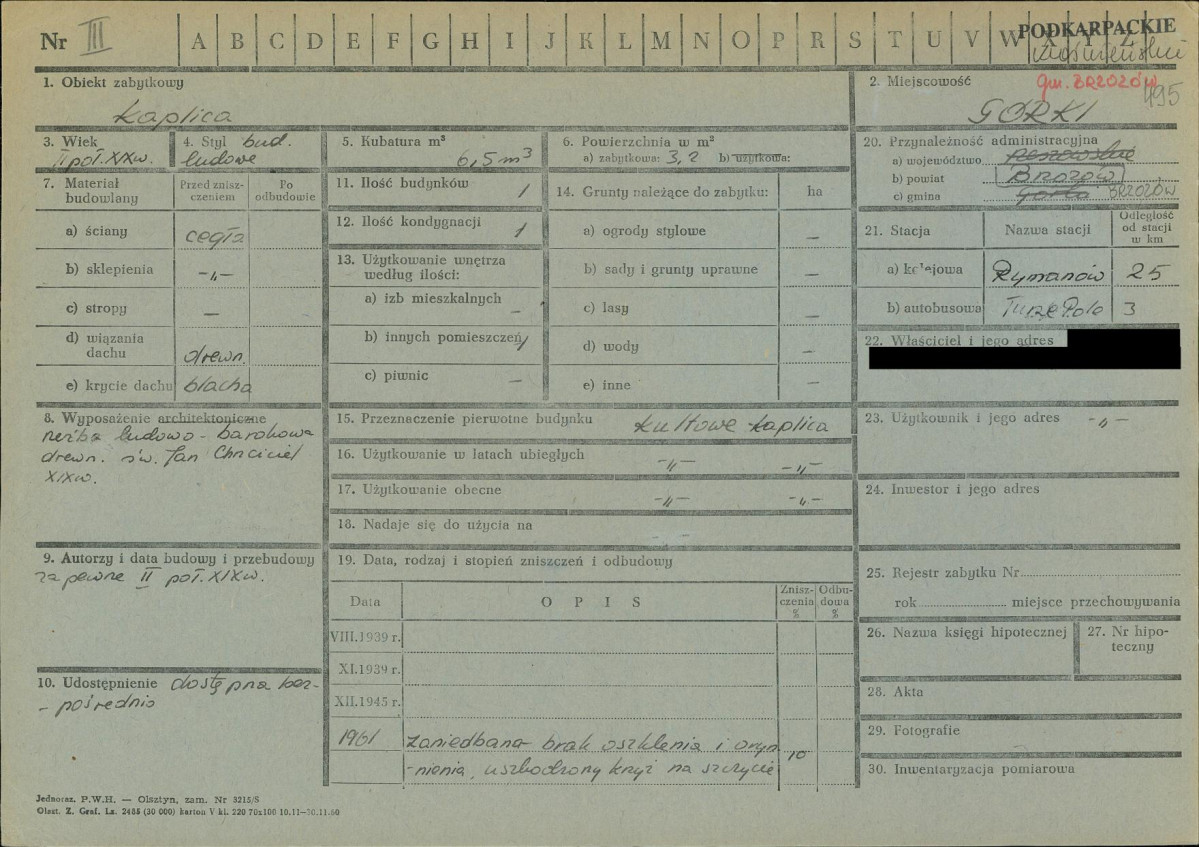 Nr III A B C D E F G H I J K L M N O P R S T U V W X Y Z
PODKARPACKIE
krośnieńskie
gm. BRZOZÓW
495
1. Obiekt zabytkowy
kaplica
2. Miejscowość
GÓRKI
3. Wiek
II poł. XIX w.
4. Styl bud.
ludowe
5. Kubatura m³
6,5 m³
6. Powierzchnia w m²
a) zabytkowa: 3,2 b) użytkowa:
7. Materiał budowlany
Przed zniszczeniem
Po odbudowie
a) ściany cegła
b) sklepienia -"-
c) stropy —
d) wiązania dachu drewn.
e) krycie dachu blacha
8. Wyposażenie architektoniczne
rzeźba ludowo - barokowa
drewn. św. Jan Chrzciciel
XIX w.
9. Autorzy i data budowy i przebudowy
zapewne II poł. XIX w.
10. Udostępnienie dostępna bez-
- pośrednio
11. Ilość budynków 1
12. Ilość kondygnacji 1
13. Użytkowanie wnętrza według ilości:
a) izb mieszkalnych —
b) innych pomieszczeń 1
c) piwnic —
14. Grunty należące do zabytku: ha
a) ogrody stylowe —
b) sady i grunty uprawne —
c) lasy —
d) wody —
e) inne —
15. Przeznaczenie pierwotne budynku kultowe - kaplica
16. Użytkowanie w latach ubiegłych -"- -"-
17. Użytkowanie obecne -"- -"-
18. Nadaje się do użycia na
19. Data, rodzaj i stopień zniszczeń i odbudowy
Data
O P I S
Zniszczenia %
Odbudowa %
VIII.1939 r.
XI.1939 r.
XII.1945 r.
1961 zaniedbana - brak oszklenia i oryn-
-nienia, uszkodzony krzyż na szczycie 10
20. Przynależność administracyjna
a) województwo rzeszowskie
b) powiat BRZOZÓW
c) gmina Górki BRZOZÓW
21. Stacja
Nazwa stacji
Odległość od stacji w km
a) kolejowa Rymanów 25
b) autobusowa Turze Pole 3
22. Właściciel i jego adres
23. Użytkownik i jego adres -"-
24. Inwestor i jego adres
25. Rejestr zabytku Nr
rok miejsce przechowywania
26. Nazwa księgi hipotecznej
27. Nr hipoteczny
28. Akta
29. Fotografie
30. Inwentaryzacja pomiarowa
Jednoraz. P.W.H. — Olsztyn, zam. Nr 3215/S
Olszt. Z. Graf. Lz. 2485 (30 000) karton V kl. 220 70x100 10.11—30.11.60